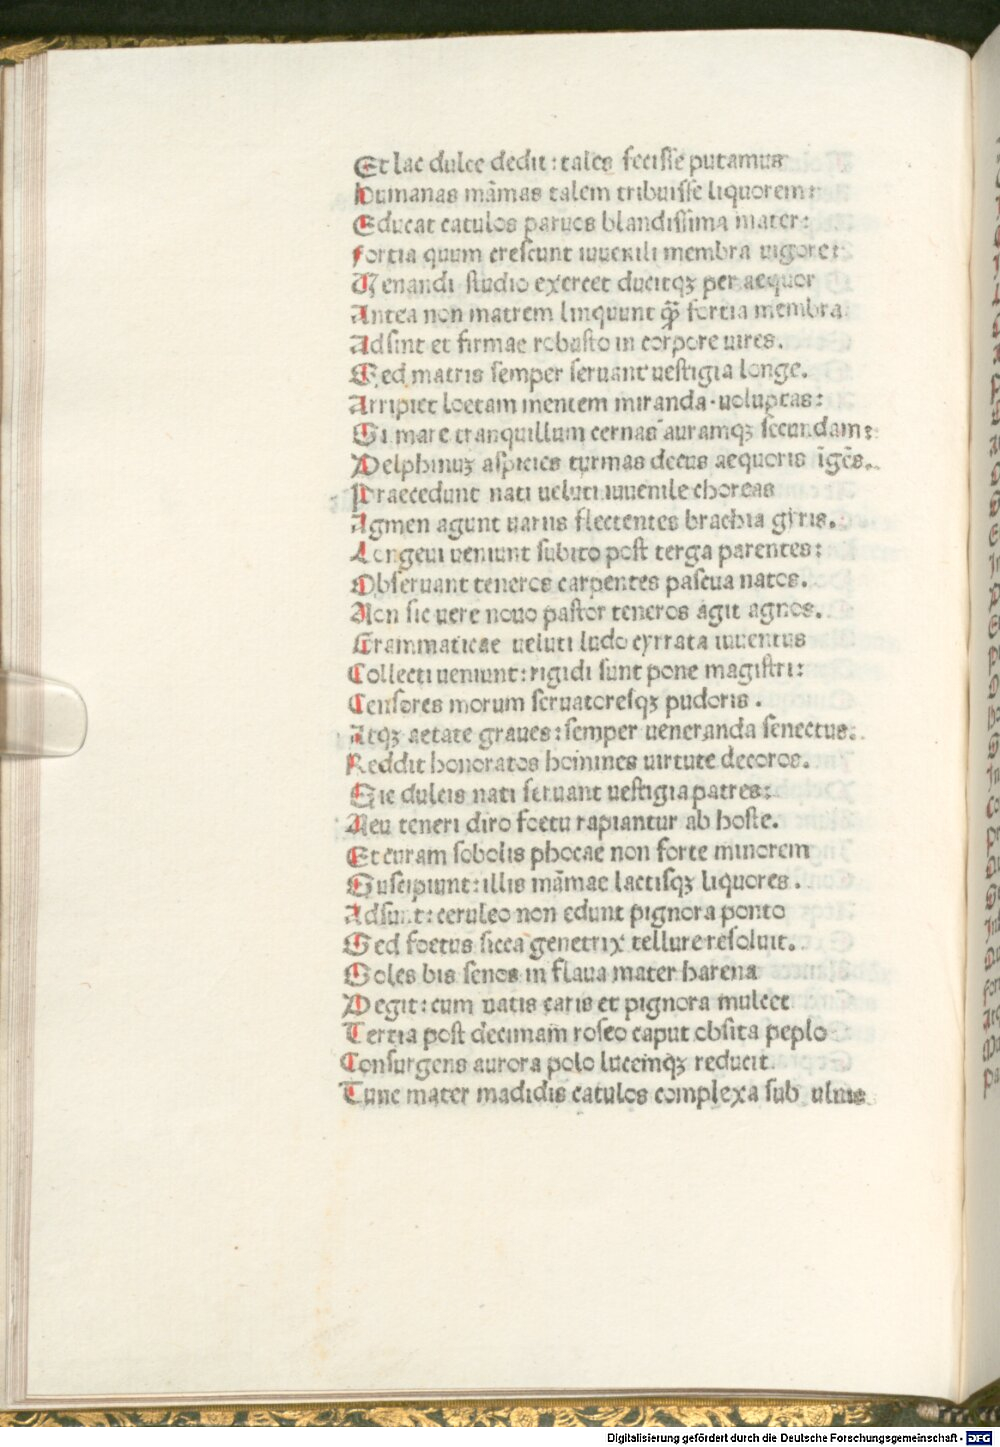 Et lac dulce dedit: tales fecisse putamus
Humanas mãmas talem tribuisse liquorem:
Educat catulos paruos blandissima mater:
Fortia quum crescunt iuuenili membra uigore:
Venandi studio exercet ducitqȝ per aequor
Antea non matrem linquunt q̃ȝ fortia membra
Adsint et firmae robusto in corpore uires.
Sed matris semper seruant uestigia longe.
Arripiet loetam mentem miranda uoluptas:
Si mare tranquillum cernas auramqȝ secundam:
Delphinuȝ aspicies turmas decus aequoris ĩgẽs.
Praecedunt nati ueluti iuuenile choreas
Agmen agunt uariis flectentes brachia gyris.
Longeui ueniunt subito post terga parentes:
Obseruant teneros carpentes pascua natos.
Non sic uere nouo pastor teneros agit agnos.
Grammaticae ueluti ludo cyrrata iuuentus
Collecti ueniunt: rigidi sunt pone magistri:
Censores morum seruatoresqȝ pudoris.
Atqȝ aetate graues: semper ueneranda senectus.
Reddit honoratos homines uirtute decoros.
Sic dulcis nati seruant uestigia patres:
Neu teneri diro foetu rapiantur ab hoste.
Et curam sobolis phocae non forte minorem
Suscipiunt: illis mãmae lactisqȝ liquores.
Adsunt: ceruleo non edunt pignora ponto
Sed foetus sicca genetrix tellure resoluit.
Soles bis senos in flaua mater harena
Degit: cum natis caris et pignora mulcet
Tertia post decimam roseo caput obsita peplo
Consurgens aurora polo lucemqȝ reducit.
Tunc mater madidis catulos complexa sub ulnis
Digitalisierung gefördert durch die Deutsche Forschungsgemeinschaft - DFG